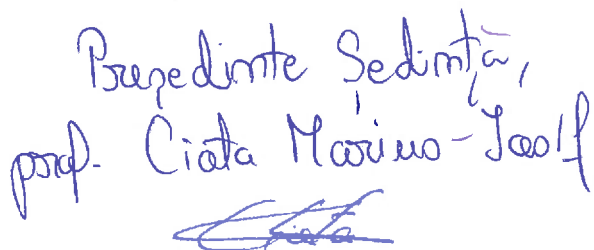 Președinte Ședință,
prof. Ciata Marius-
Ciata